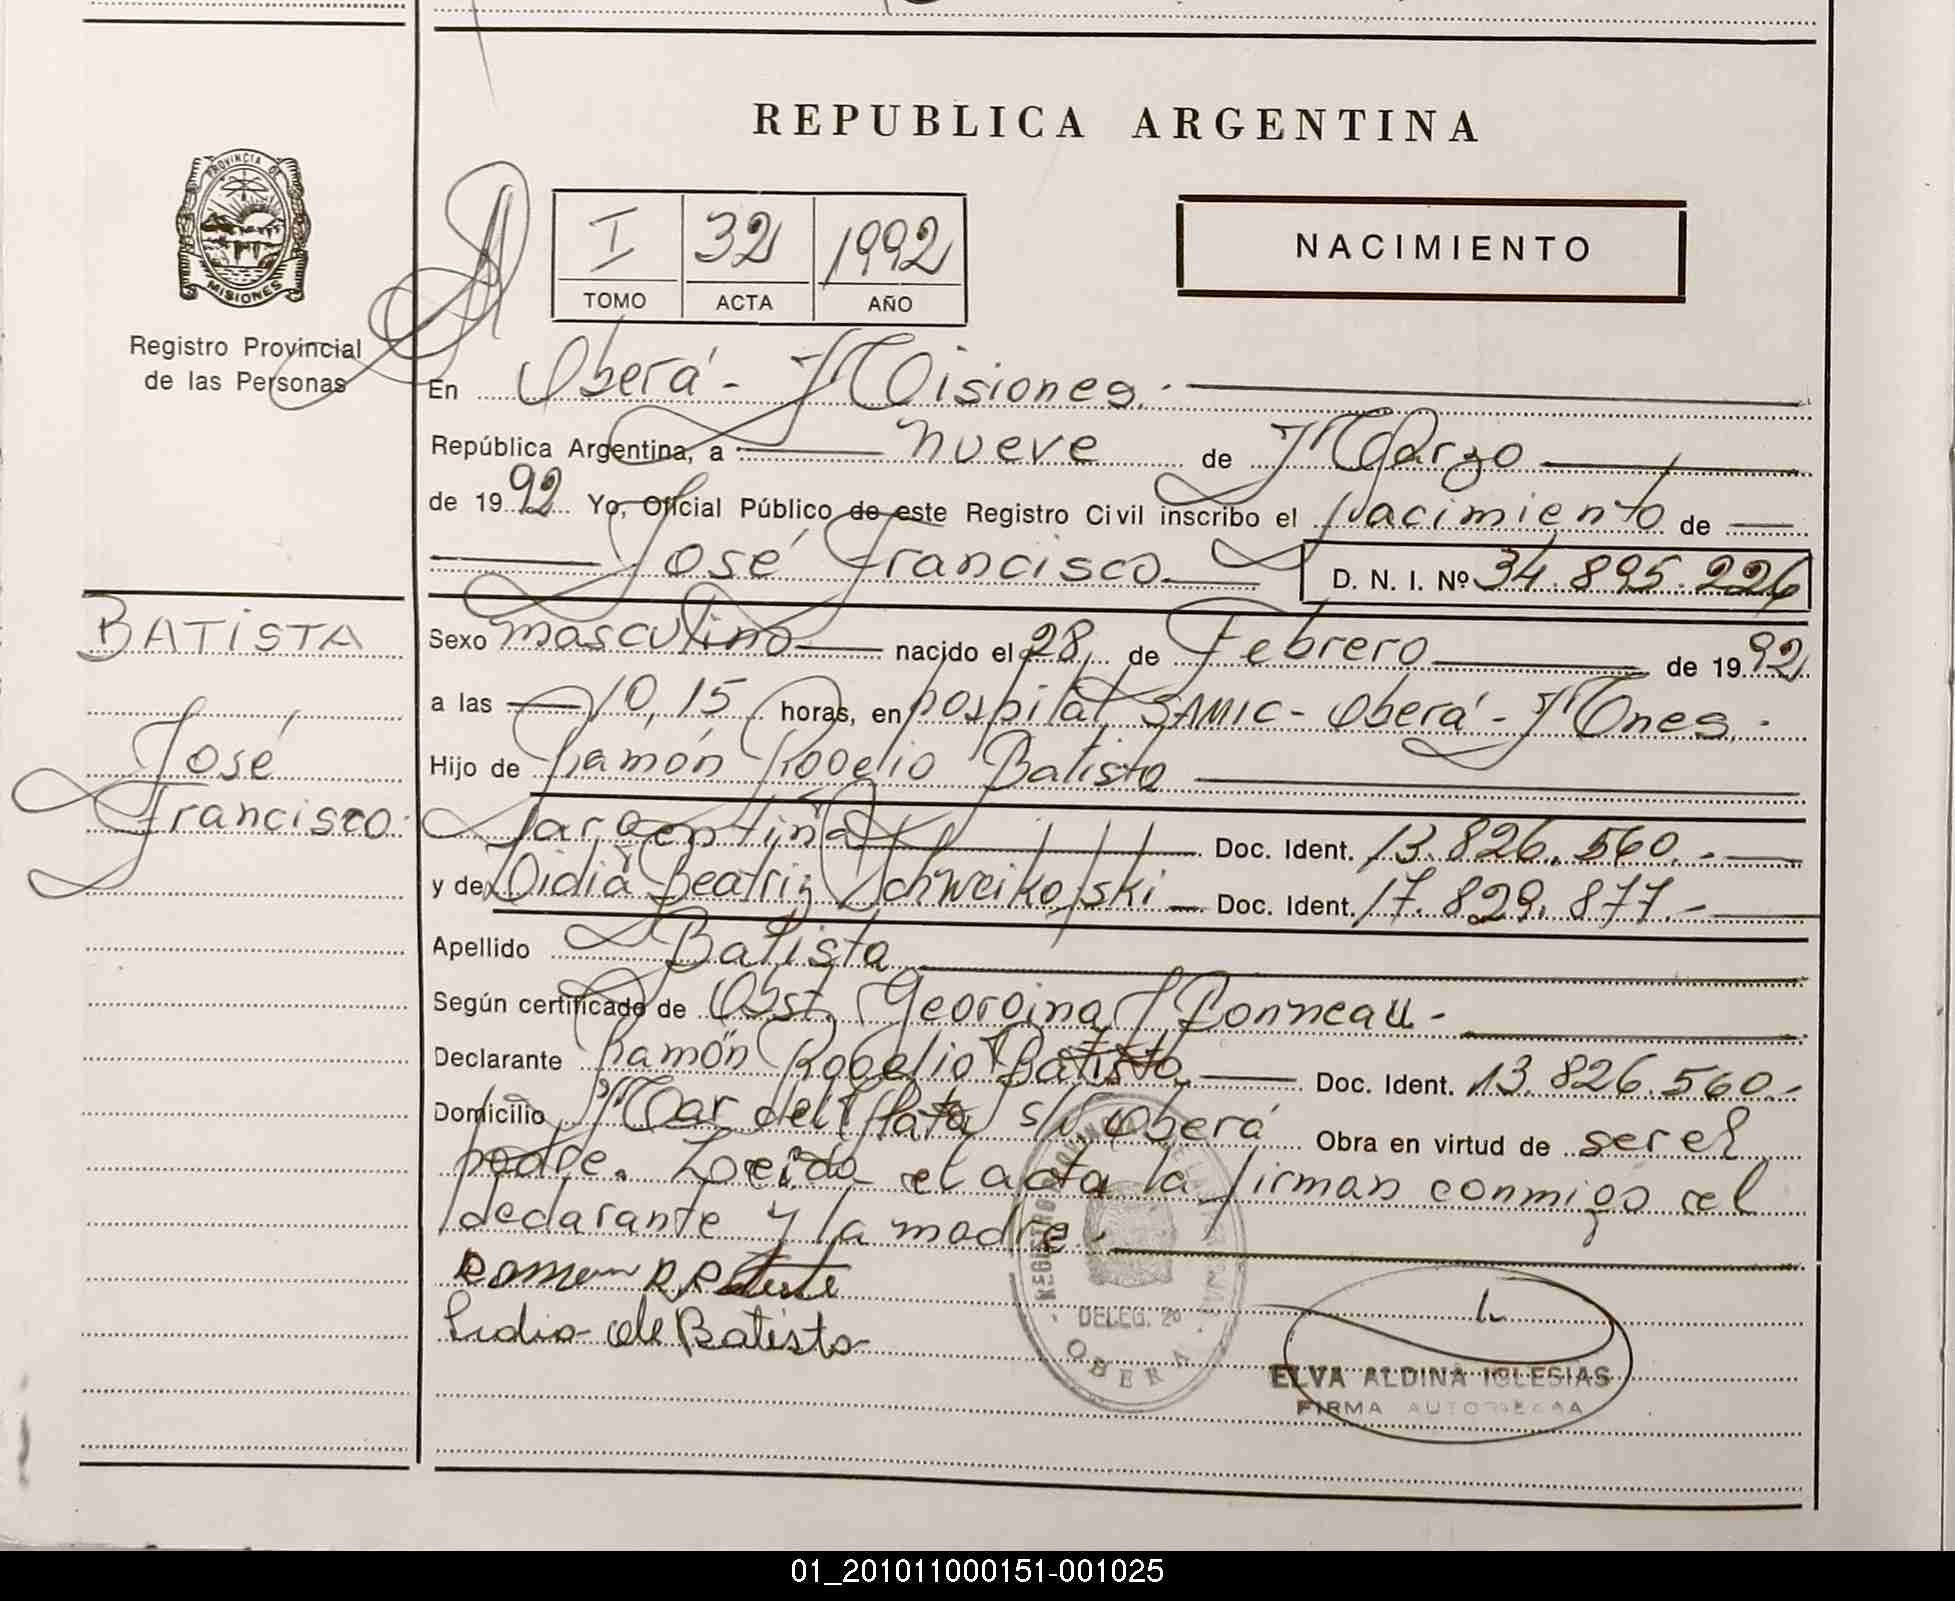 REPUBLICA ARGENTINA
PROVINCIA DE
MISIONES
Registro Provincial
de las Personas
I 32 1992
TOMO ACTA AÑO
NACIMIENTO
En Oberá - Misiones.
República Argentina, a nueve de Marzo
de 1992 Yo, Oficial Público de este Registro Civil inscribo el nacimiento de
José Francisco D. N. I. Nº 34.895.226
BATISTA
José
Francisco.
Sexo masculino nacido el 28 de Febrero de 1992
a las 10,15 horas, en hospital SAMIC - Oberá - Mnes.
Hijo de Ramón Rogelio Batista
argentina Doc. Ident. 13.826.560.-
y de Lidia Beatriz Schweikofski Doc. Ident. 17.829.877.-
Apellido Batista
Según certificado de Obst. Georgina Bonneau -
Declarante Ramón Rogelio Batista Doc. Ident. 13.826.560.-
Domicilio Mar del Plata s/n Oberá Obra en virtud de ser el
padre. Leída el acta la firman conmigo el
declarante y la madre.
Ramon R Batista
Lidia de Batista
DELEG. 2º
OBERA
ELVA ALDINA IGLESIAS
FIRMA AUTORIZADA
01_201011000151-001025